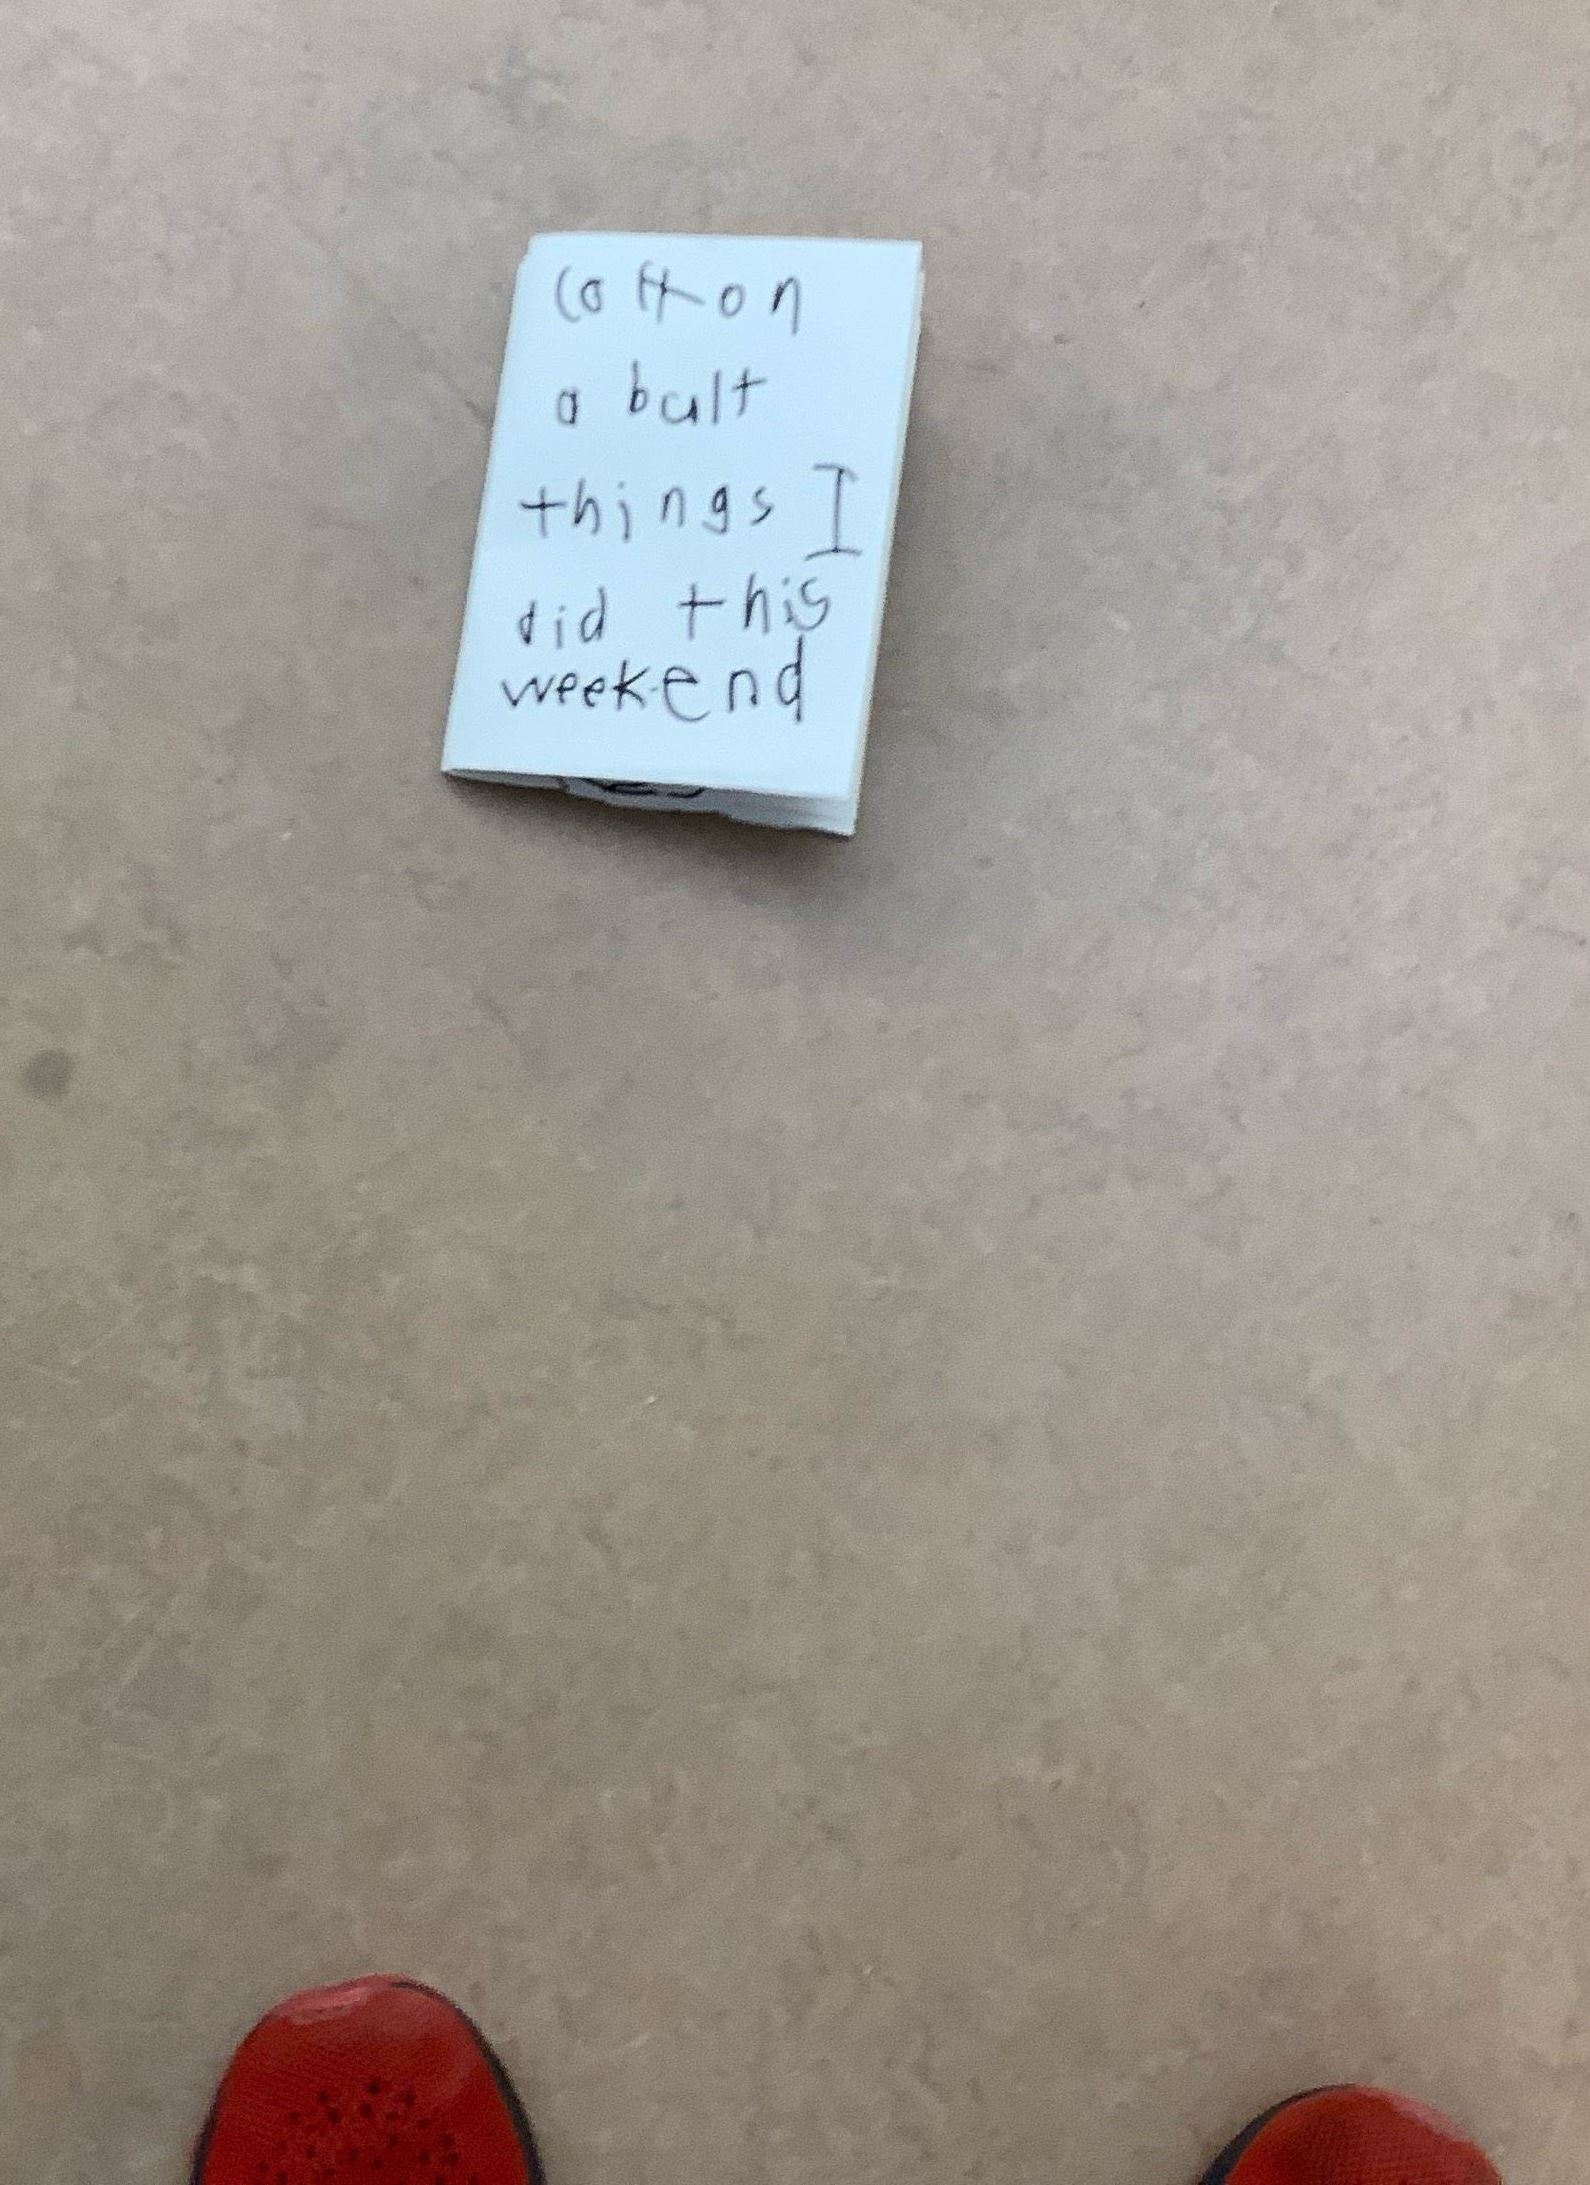 cotton
a bult
things I
did this
weekend